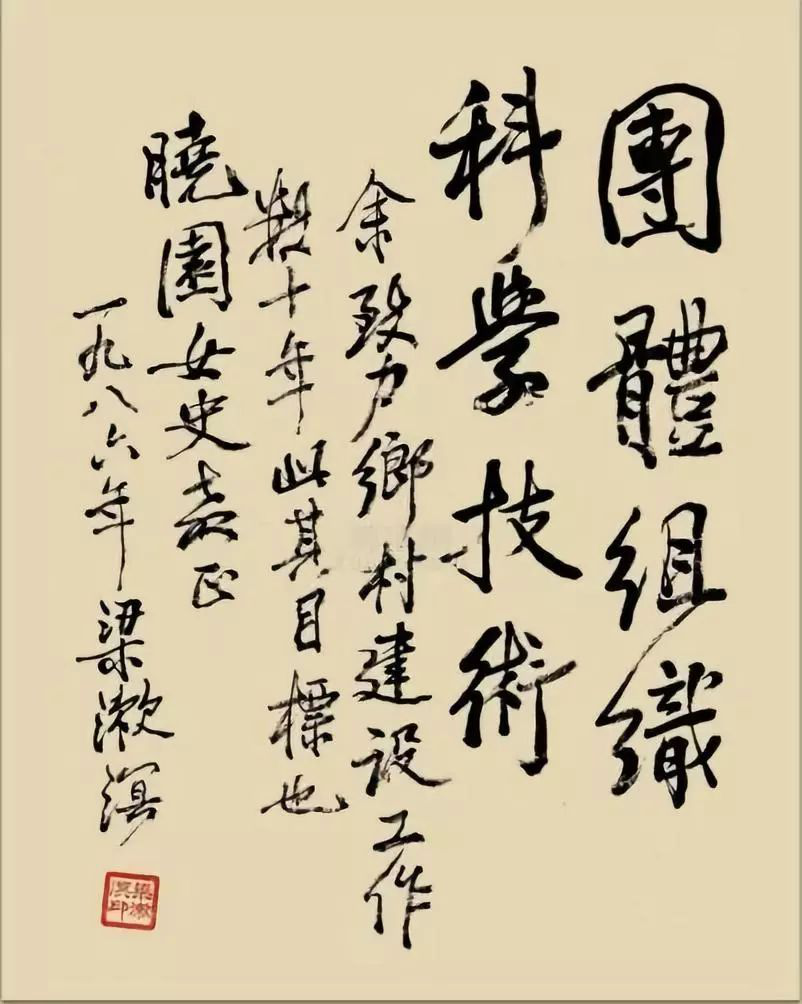 團體組織
科學技術
余致力鄉村建設工作
數十年此其目標也
曉園女史嘉正
一九八六年 梁漱溟
梁漱溟印